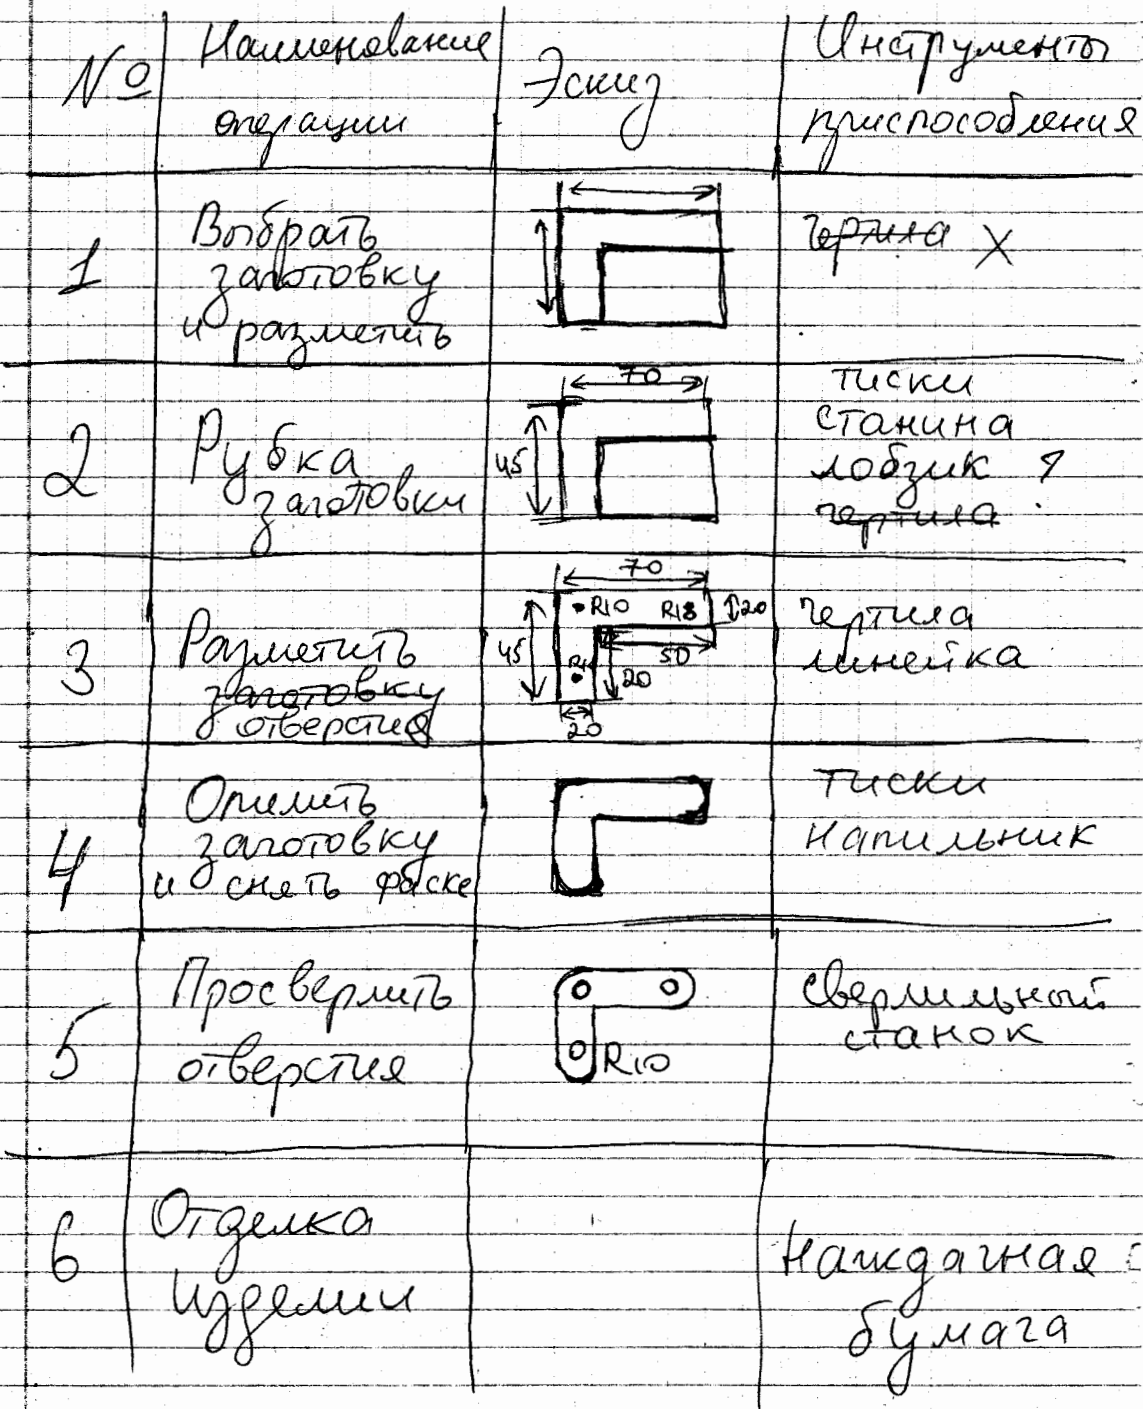 №
Наименование
операции
Эскиз
Инструменты
приспособления
1
Выбрать
заготовку
и разметить
чертила X
2
Рубка
заготовки
70
45
тиски
станина
лобзик ?
чертила
3
Разметить
заготовку
отверстия
70
R10 R18 20
45
50
20
20
чертила
линейка
4
Опилить
заготовку
и снять фаске
тиски
напильник
5
Просверлить
отверстия
R10
сверлильный
станок
6
Отделка
изделии
наждачная
бумага